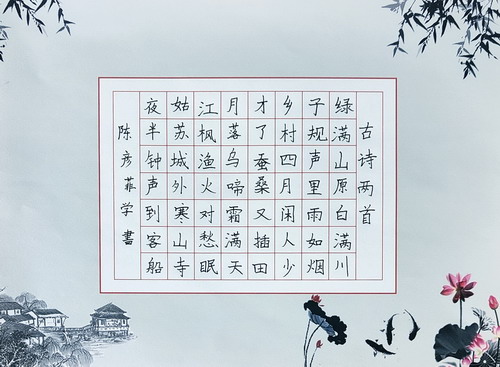 古诗两首
绿满山原白满川
子规声里雨如烟
乡村四月闲人少
才了蚕桑又插田
月落乌啼霜满天
江枫渔火对愁眠
姑苏城外寒山寺
夜半钟声到客船
陈彦菲学書